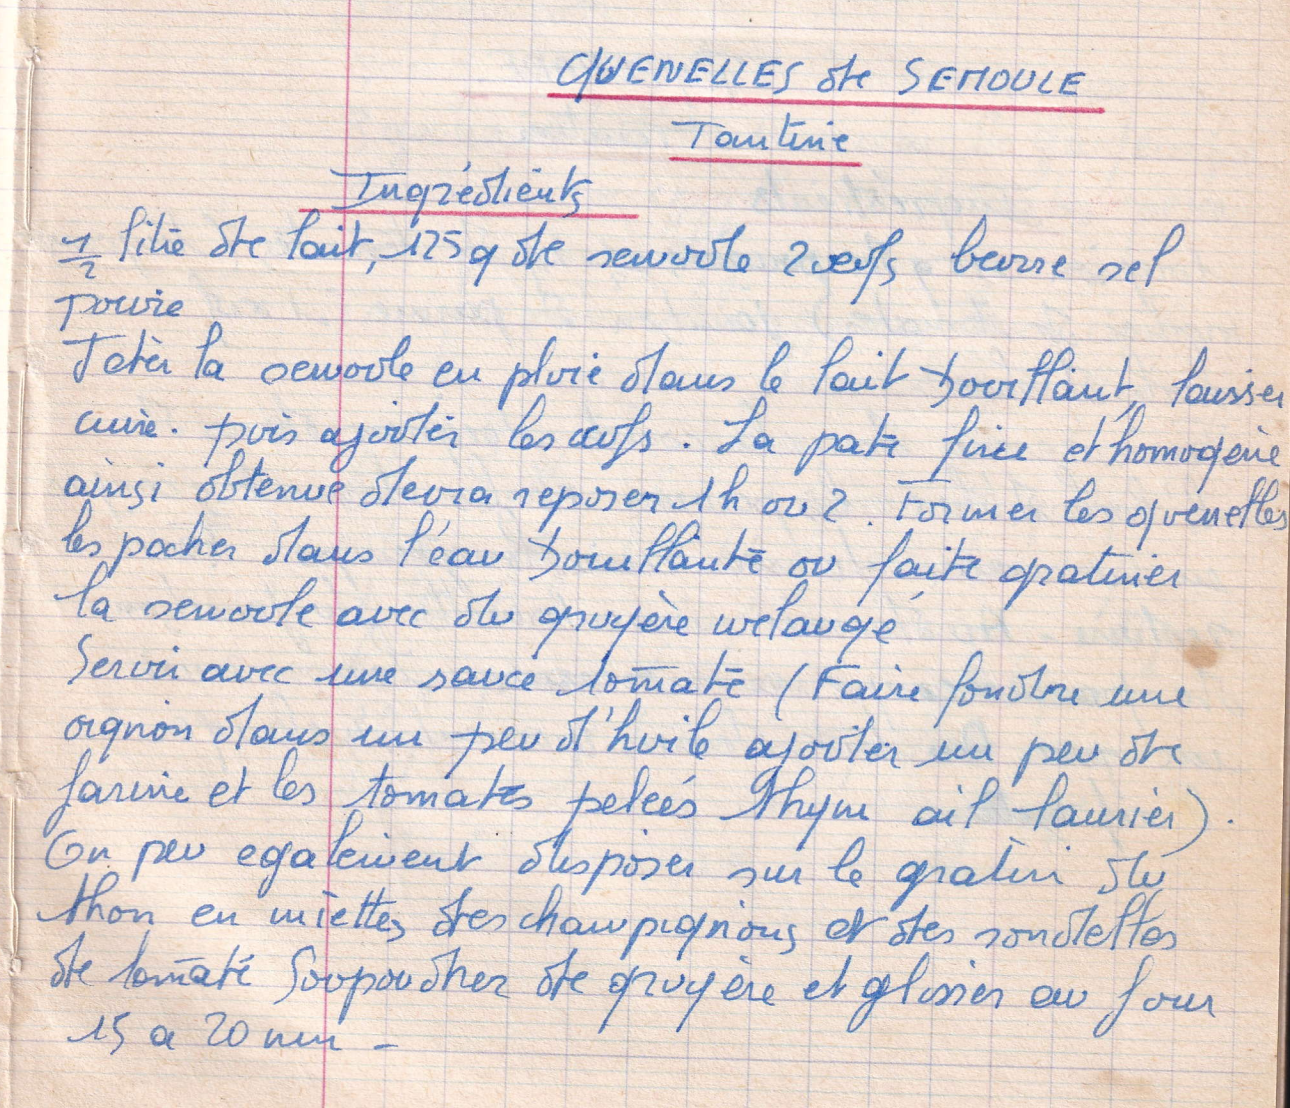 QUENELLES de SEMOULE
Tantine
Ingrédients
1/2 litre de lait, 125g de semoule 2 oeufs beurre sel
poivre
Jeter la semoule en pluie dans le lait bouillant, laisser
cuire. puis ajouter les oeufs. La pate fine et homogène
ainsi obtenue devra reposer 1h ou 2. Former les quenelles
les pocher dans l'eau bouillante ou faite gratiner
la semoule avec du gruyère melangé
Servir avec une sauce tomate (Faire fondre une
oignon dans un peu d'huile ajouter un peu de
farine et les tomates pelées thym ail laurier).
On peu egalement disposer sur le gratin du
thon en miettes des champignons et des rondelles
de tomate Soupoudrer de gruyère et glisser au four
15 a 20 mn -